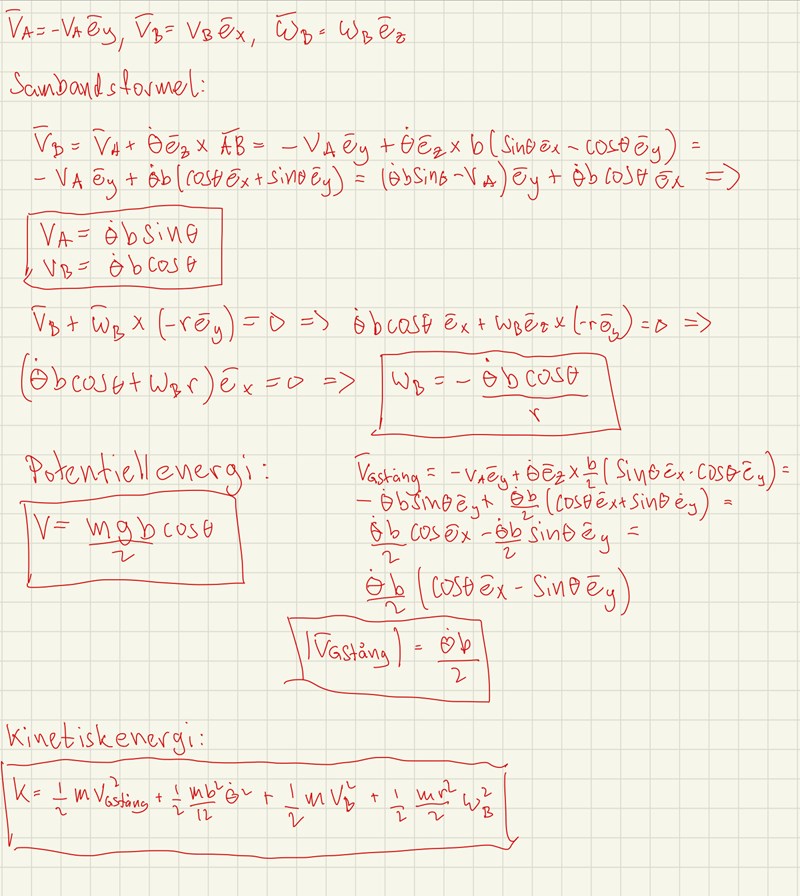 V̄_A = -V_A ē_y, V̄_B = V_B ē_x, ω̄_B = ω_B ē_z
Sambandsformel:
V̄_B = V̄_A + θ̇ē_z × A̅B̅ = - V_A ē_y + θ̇ē_z × b(sinθ ē_x - cosθ ē_y) =
- V_A ē_y + θ̇b(cosθ ē_x + sinθ ē_y) = (θ̇b sinθ - V_A) ē_y + θ̇b cosθ ē_x =>
V_A = θ̇ b sinθ
V_B = θ̇ b cosθ
V̄_B + ω̄_B × (-r ē_y) = 0 => θ̇ b cosθ ē_x + ω_B ē_z × (-r ē_y) = 0 =>
(θ̇ b cosθ + ω_B r) ē_x = 0 => ω_B = - θ̇ b cosθ / r
Potentiell energi:
V = mgb/2 cosθ
V̄_Gstång = -V_A ē_y + θ̇ ē_z × b/2 (sinθ ē_x - cosθ ē_y) =
- θ̇b sinθ ē_y + θ̇b/2 (cosθ ē_x + sinθ ē_y) =
θ̇b/2 cosθ ē_x - θ̇b/2 sinθ ē_y =
θ̇b/2 (cosθ ē_x - sinθ ē_y)
|V̄_Gstång| = θ̇b/2
Kinetisk energi:
K = 1/2 m V²_Gstång + 1/2 mb²/12 θ̇² + 1/2 m V_B² + 1/2 mr²/2 ω_B²